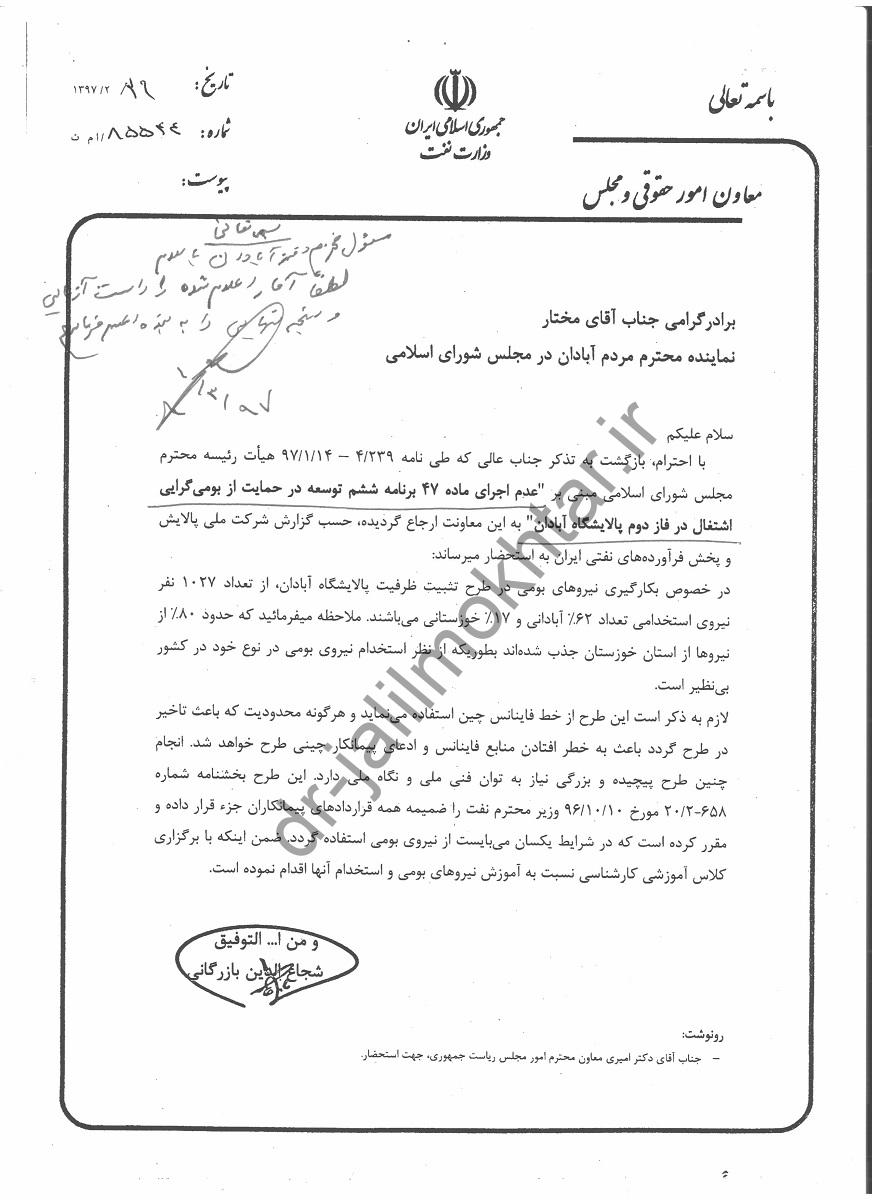 باسمه تعالی
جمهوری اسلامی ایران
وزارت نفت
تاریخ: ۱۳۹۷/۲/
شماره: ۸۵۵۴۴/ام ن
پیوست:
معاون امور حقوقی و مجلس
بسمه تعالی
مسئول محترم دفتر آبادان با سلام
لطفاً آمار اعلام شده را راست آزمایی
و نتیجه نهایی را به بنده اعلام فرمایید
۹۷/۳/
برادر گرامی جناب آقای مختار
نماینده محترم مردم آبادان در مجلس شورای اسلامی
سلام علیکم
با احترام، بازگشت به تذکر جناب عالی که طی نامه ۴/۲۳۹ – ۹۷/۱/۱۴ هیأت رئیسه محترم
مجلس شورای اسلامی مبنی بر "عدم اجرای ماده ۴۷ برنامه ششم توسعه در حمایت از بومی‌گرایی
اشتغال در فاز دوم پالایشگاه آبادان" به این معاونت ارجاع گردیده، حسب گزارش شرکت ملی پالایش
و پخش فرآورده‌های نفتی ایران به استحضار میرساند:
در خصوص بکارگیری نیروهای بومی در طرح تثبیت ظرفیت پالایشگاه آبادان، از تعداد ۱۰۲۷ نفر
نیروی استخدامی تعداد ۶۲٪ آبادانی و ۱۷٪ خوزستانی می‌باشند. ملاحظه میفرمائید که حدود ۸۰٪ از
نیروها از استان خوزستان جذب شده‌اند بطوریکه از نظر استخدام نیروی بومی در نوع خود در کشور
بی‌نظیر است.
لازم به ذکر است این طرح از خط فاینانس چین استفاده می‌نماید و هرگونه محدودیت که باعث تاخیر
در طرح گردد باعث به خطر افتادن منابع فاینانس و ادعای پیمانکار چینی طرح خواهد شد. انجام
چنین طرح پیچیده و بزرگی نیاز به توان فنی ملی و نگاه ملی دارد. این طرح بخشنامه شماره
۲۰/۲-۶۵۸ مورخ ۹۶/۱۰/۱۰ وزیر محترم نفت را ضمیمه همه قراردادهای پیمانکاران جزء قرار داده و
مقرر کرده است که در شرایط یکسان می‌بایست از نیروی بومی استفاده گردد. ضمن اینکه با برگزاری
کلاس آموزشی کارشناسی نسبت به آموزش نیروهای بومی و استخدام آنها اقدام نموده است.
و من ا... التوفیق
شجاع الدین بازرگانی
رونوشت:
– جناب آقای دکتر امیری معاون محترم امور مجلس ریاست جمهوری، جهت استحضار.
dr-jalilmokhtar.ir